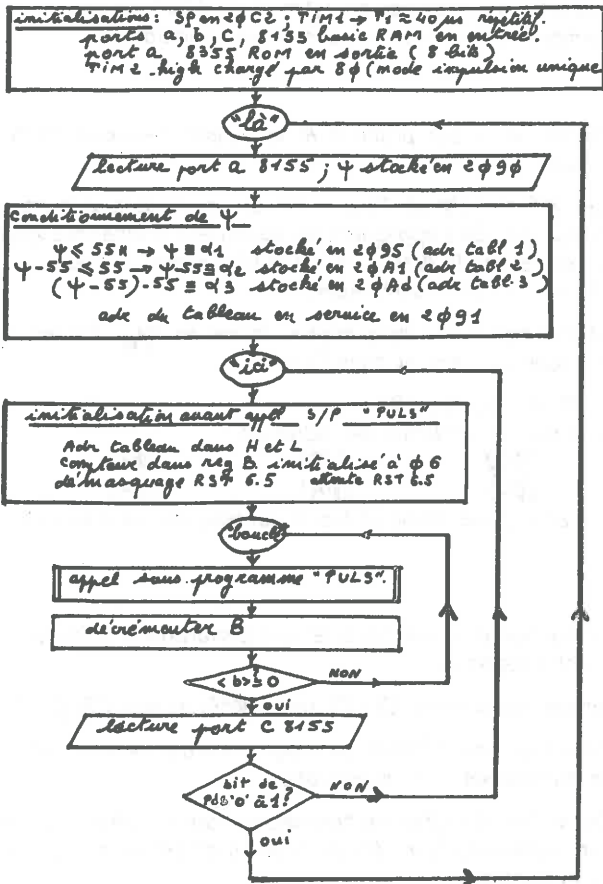 initialisations: SP en 2φC2 ; TIM1 → T1 ≈ 40 µs répétitif.
ports a, b, C, 8155 basic RAM en entrée.
port a 8355 ROM en sortie (8 bits)
TIM 2 high chargé par 8φ (mode impulsion unique
"là"
lecture port a 8155 ; ψ stocké en 2φ9φ
Conditionnement de ψ
ψ ≤ 55H → ψ ≡ α1 stocké en 2φ95 (adr tabl 1)
ψ-55 ≤ 55 → ψ-55 ≡ α2 stocké en 2φA1 (adr tabl 2)
(ψ-55)-55 ≡ α3 stocké en 2φAd (adr tabl 3)
adr du tableau en service en 2φ91
"ici"
initialisation avant appl S/P "PULS"
Adr tableau dans H et L
compteur dans reg B initialisé à φ6
démasquage RST 6.5 attente RST 6.5
"boucle"
appel sous programme "PULS".
décrémenter B
<b> ≟ 0
NON
oui
lecture port C 8155
bit de
Pds '0' à 1?
NON
oui